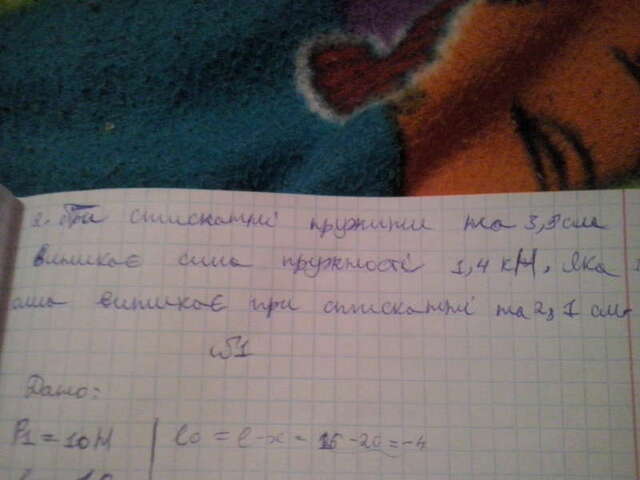 2. При стисканні пружини на 3,9 см
виникає сила пружності 1,4 кН, Яка
сила виникає при стисканні на 2,1 см.
№1
Дано:
P₁ = 10 Н | l₀ = l - x = 16 - 20 = -4